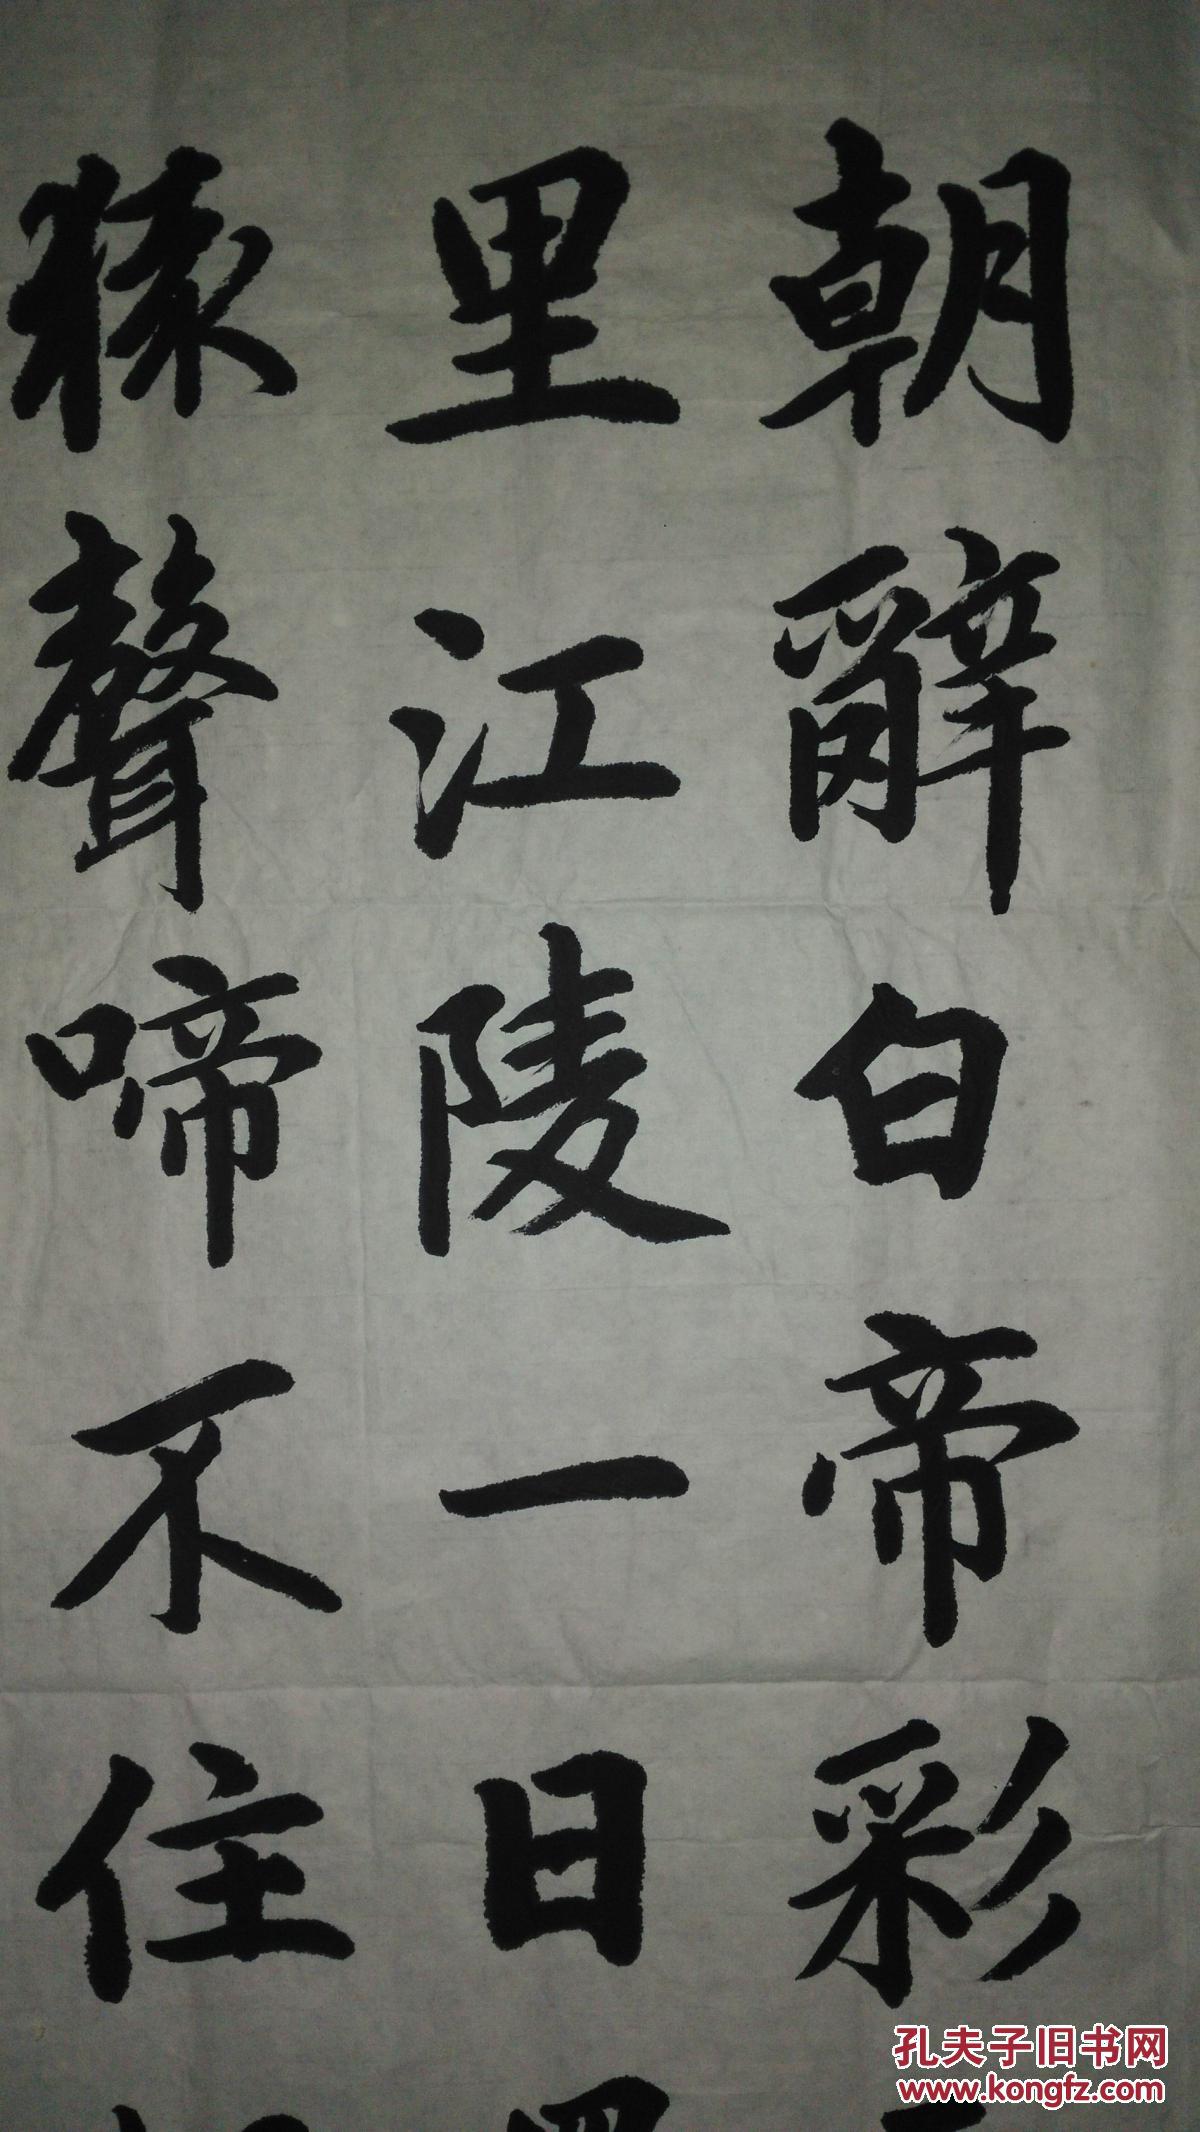 朝辭白帝彩
里江陵一日
猿聲啼不住
孔夫子旧书网
www.kongfz.com